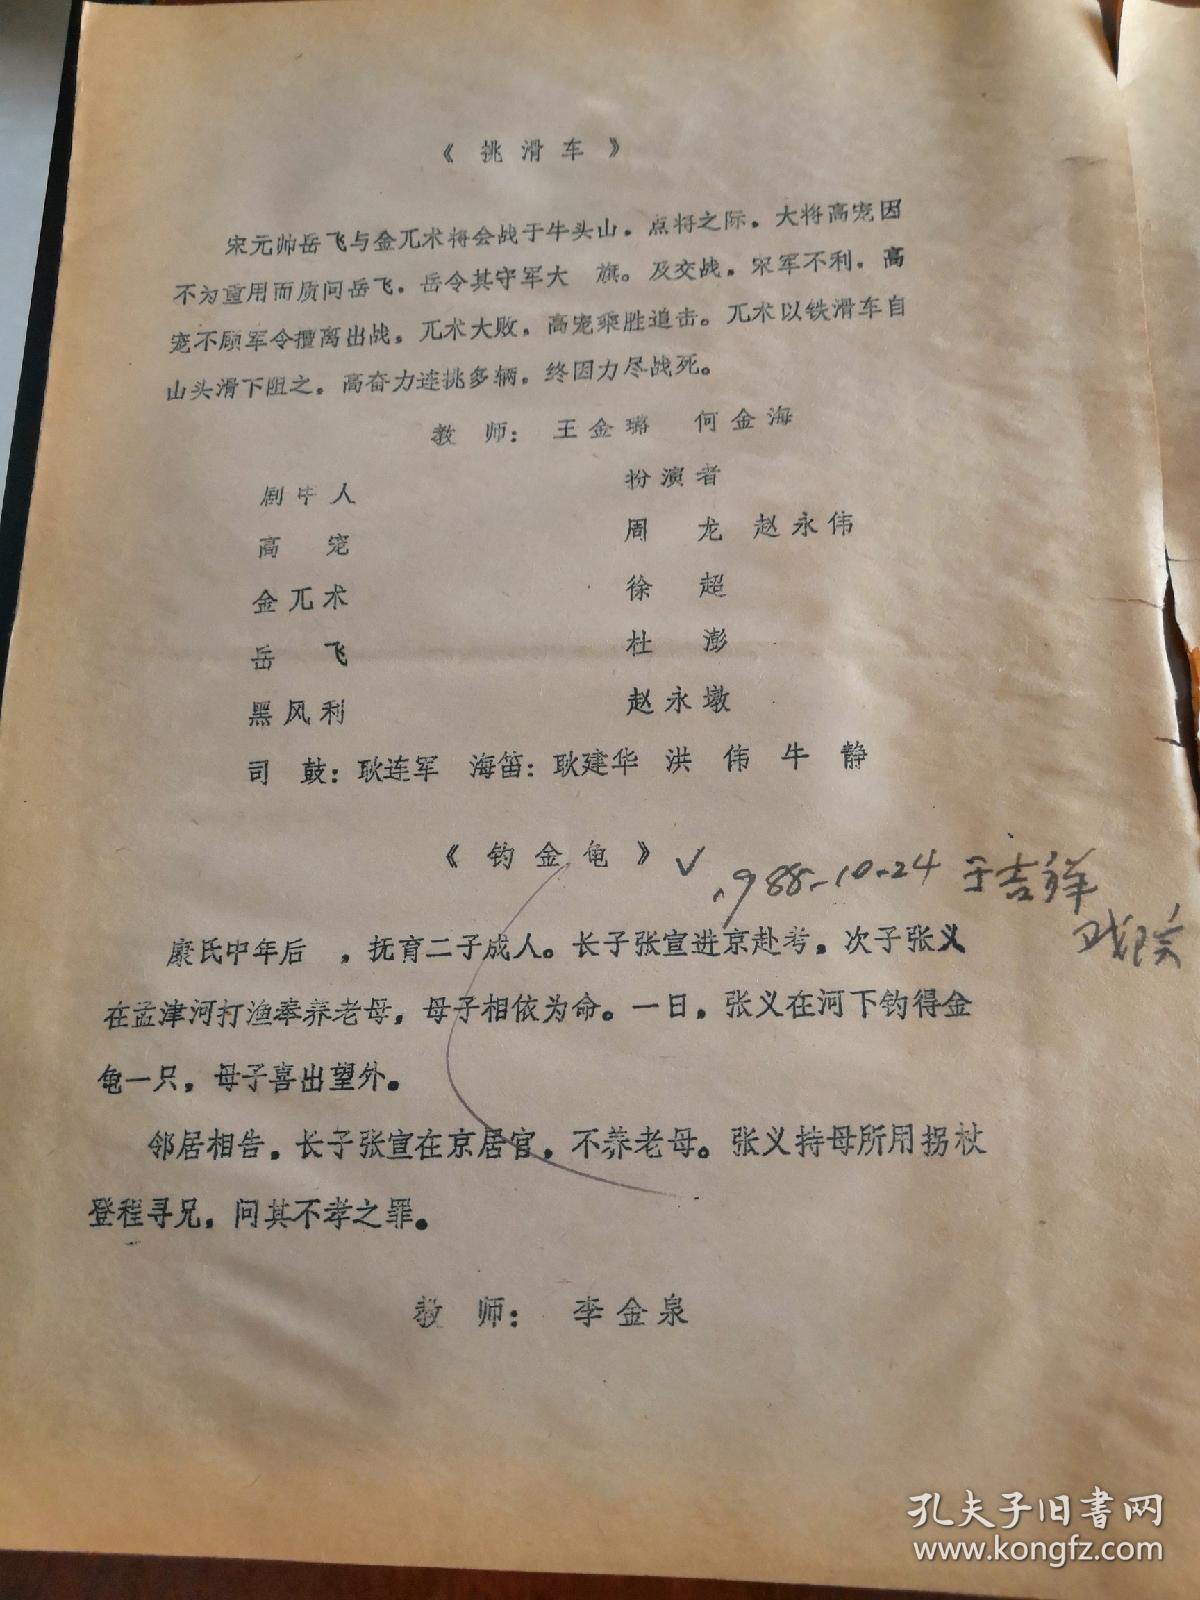 《 挑 滑 车 》
宋元帅岳飞与金兀术将会战于牛头山。点将之际，大将高宠因
不为重用而质问岳飞。岳令其守军大　旗。及交战，宋军不利，高
宠不顾军令擅离出战。兀术大败，高宠乘胜追击。兀术以铁滑车自
山头滑下阻之。高奋力连挑多辆，终因力尽战死。
教　师：　王金璐　何金海
剧中人　扮演者
高　宠　周　龙　赵永伟
金兀术　徐　超
岳　飞　杜　澎
黑风利　赵永墩
司　鼓：耿连军　海笛：耿建华　洪　伟　牛　静
《 钓 金 龟 》 √ 1988-10-24 于吉祥
戏院
康氏中年后　，抚育二子成人。长子张宣进京赴考，次子张义
在孟津河打渔奉养老母，母子相依为命。一日，张义在河下钓得金
龟一只，母子喜出望外。
邻居相告，长子张宣在京居官，不养老母。张义持母所用拐杖
登程寻兄，问其不孝之罪。
教　师：　李金泉
孔夫子旧书网
www.kongfz.com